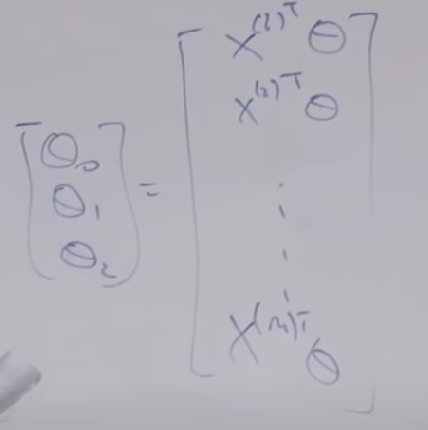 [θ₀ θ₁ θ₂] = [x⁽¹⁾ᵀ θ
x⁽²⁾ᵀ θ
⋮
x⁽ᵐ⁾ᵀ θ]